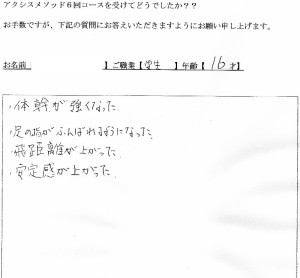 アクシスメソッド６回コースを受けてどうでしたか？？
お手数ですが、下記の質問にお答えいただきますようにお願い申し上げます。
お名前【 】ご職業【学生 】年齢【 16才】
・体幹が強くなった.
・足の指がふんばれるようになった.
・飛距離が上がった.
・安定感が上がった.